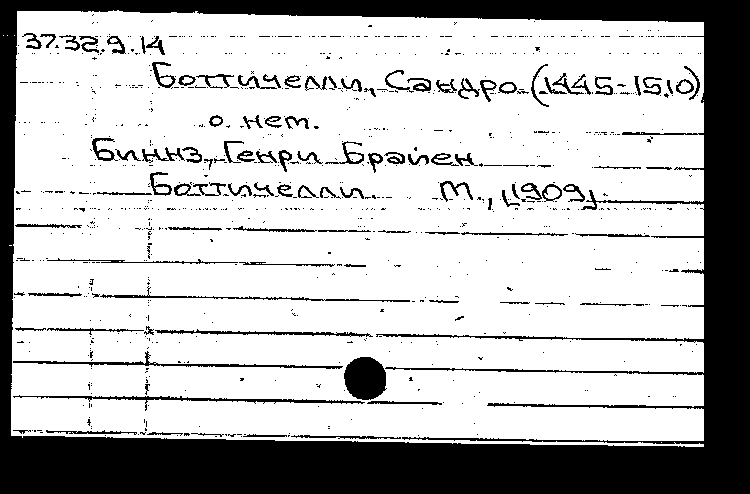 37.32.9.14
Боттичелли, Сандро (1445-1510),
о нем.
Биннз, Генри Брайен.
Боттичелли. М., [1909].